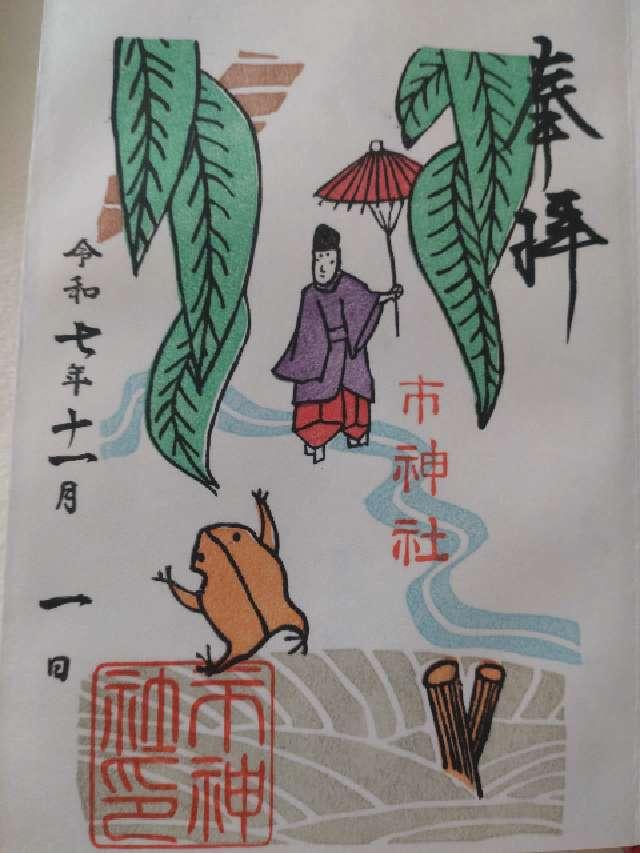 奉拝
市神社
令和七年十一月一日
市神
社印